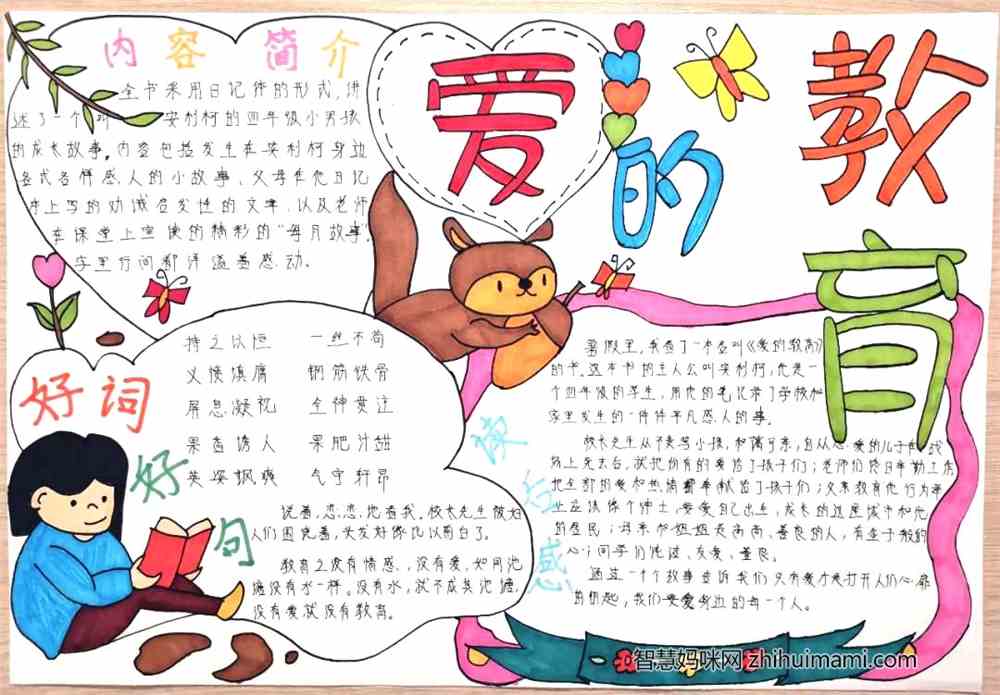 爱的教育
内容简介
全书采用日记体的形式,讲
述了一个 安利柯的四年级小男孩
的成长故事。内容包括发生在安利柯身边
各式各样感人的小故事、父母在他日记
本上写的劝诫启发性的文章,以及老师
在课堂上宣读的精彩的"每月故事"。
字里行间都洋溢着感动。
好词
持之以恒 一丝不苟
义愤填膺 钢筋铁骨
屏息凝视 全神贯注
果香诱人 果肥汁甜
英姿飒爽 气宇轩昂
好句
说着,恋恋地看我。校长先生被
人们围绕着,头发好像比以前白了。
教育之没有情感,没有爱,如同池
塘没有水一样。没有水,就不成其池塘,
没有爱就没有教育。
读后感
暑假里,我看了一本名叫《爱的教育》
的书。这本书的主人公叫安利柯,他是一
个四年级的学生,用他的笔记录了学校和
家里发生的一件件平凡感人的事。
校长先生从不责骂小孩,和蔼可亲,自从心爱的儿子在战
场上死去后,就把所有的爱给了孩子们;老师们终日辛勤工作
把全部的爱和热情 献给了孩子们;父亲教育他行为举
止应该像个绅士,要爱自己出生,成长的这座城市和他
的居民;母亲和姐姐是高尚、善良的人,有益于教的
心;同学们 、友爱、善良。
通过一个个故事告诉我们只有爱才是打开人们心扉
的钥匙,我们要爱身边的每一个人。
智慧妈咪网 zhihuimami.com